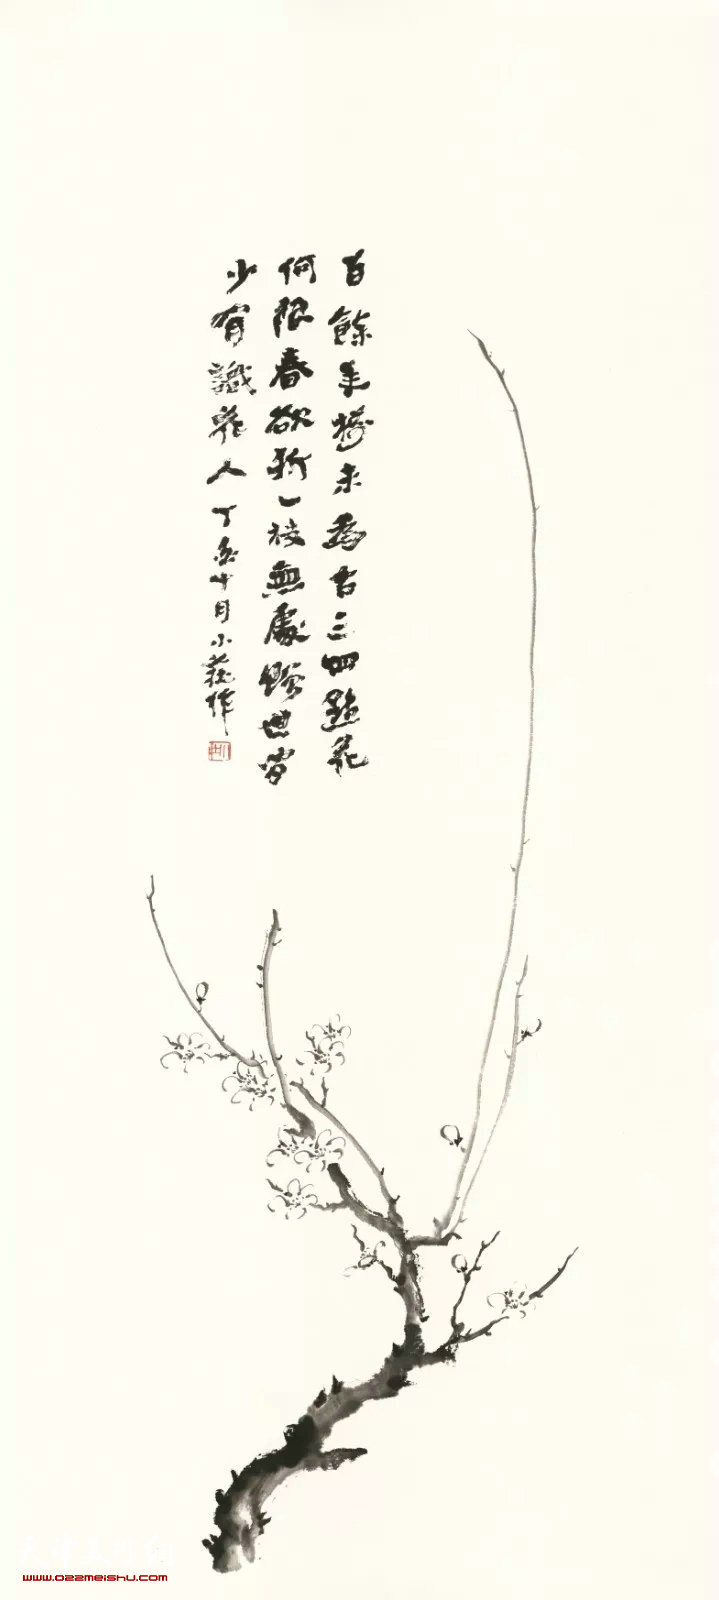 百餘年樹未為古三四點花
何限春欲折一枝無處贈世間
少有識花人丁亥十月小莊作
天津美術網
www.022meishu.com